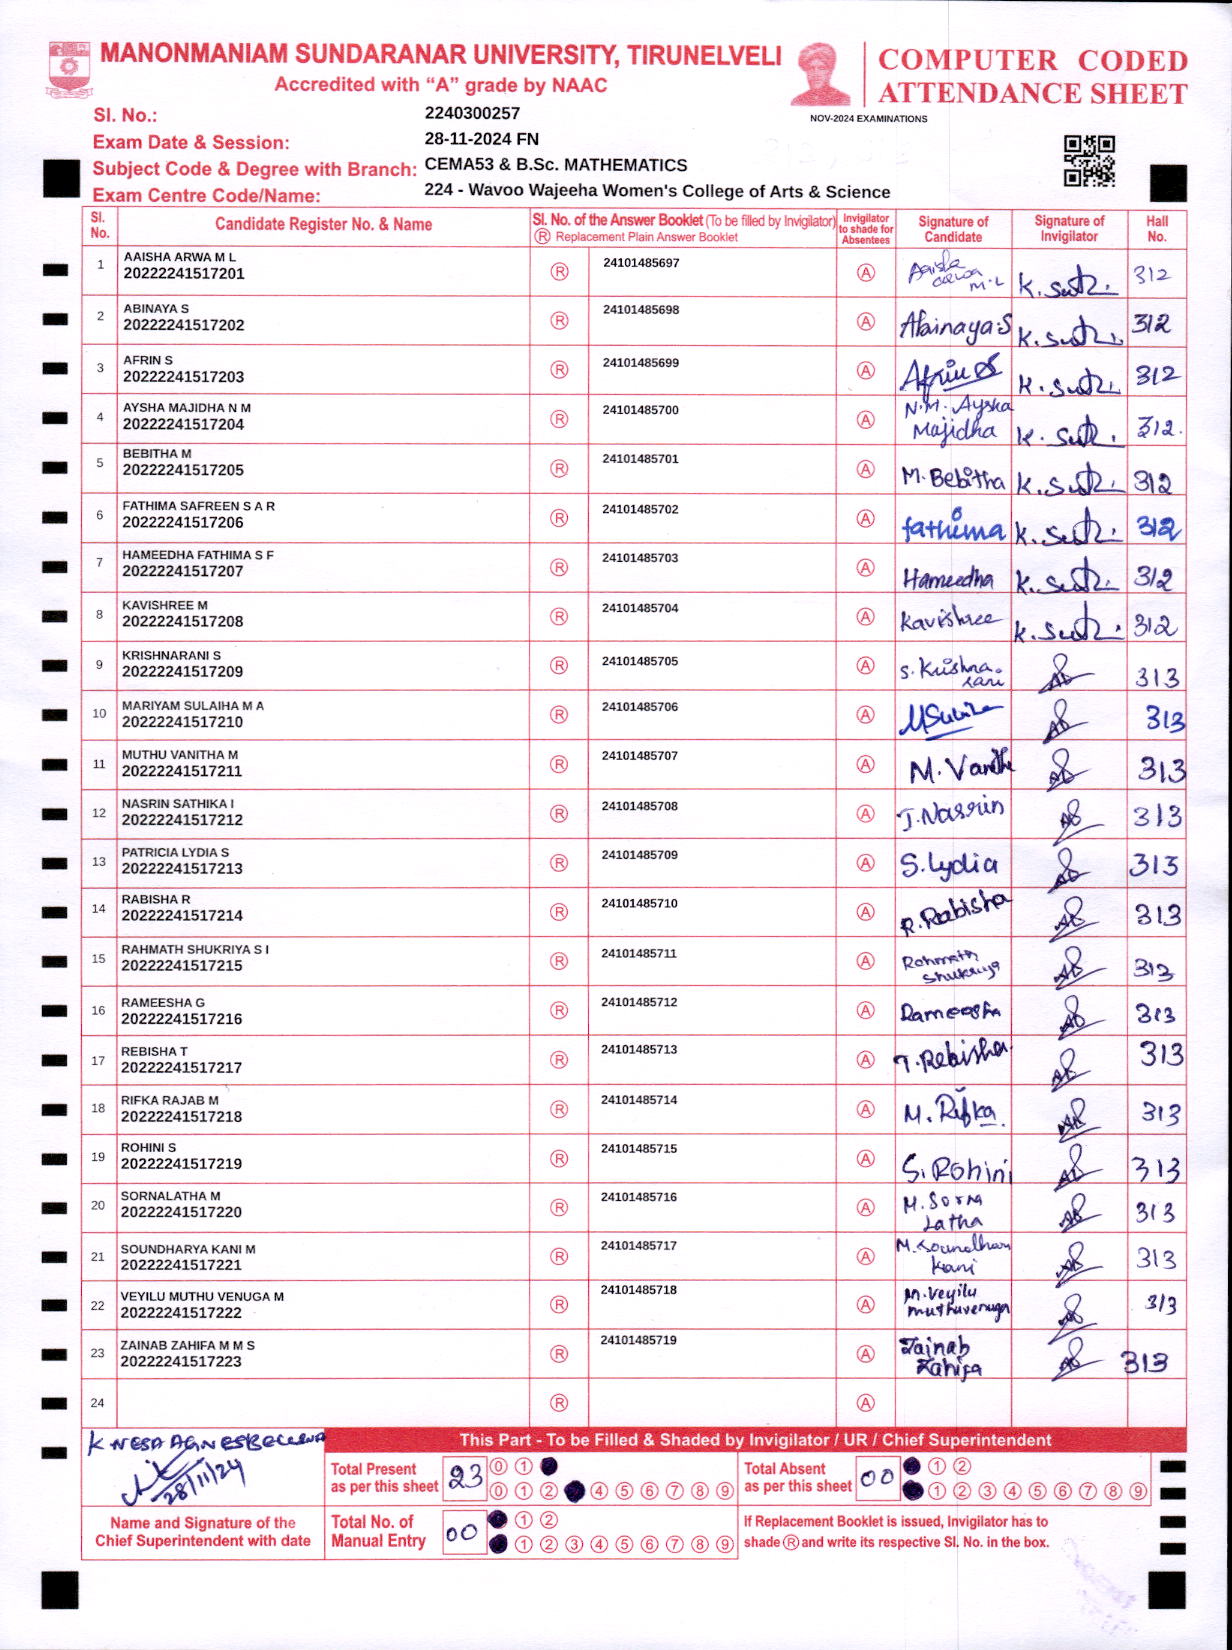 MANONMANIAM SUNDARANAR UNIVERSITY, TIRUNELVELI
Accredited with “A” grade by NAAC
COMPUTER CODED
ATTENDANCE SHEET
NOV-2024 EXAMINATIONS
Sl. No.: 2240300257
Exam Date & Session: 28-11-2024 FN
Subject Code & Degree with Branch: CEMA53 & B.Sc. MATHEMATICS
Exam Centre Code/Name: 224 - Wavoo Wajeeha Women's College of Arts & Science
Sl. No. Candidate Register No. & Name Sl. No. of the Answer Booklet (To be filled by Invigilator) Ⓡ Replacement Plain Answer Booklet Invigilator to shade for Absentees Signature of Candidate Signature of Invigilator Hall No.
1 AAISHA ARWA M L
20222241517201 Ⓡ 24101485697 Ⓐ Aaisha Arwa M.L K. Suthi 312
2 ABINAYA S
20222241517202 Ⓡ 24101485698 Ⓐ Abinaya.S K. Suthi 312
3 AFRIN S
20222241517203 Ⓡ 24101485699 Ⓐ Afrin S K. Suthi 312
4 AYSHA MAJIDHA N M
20222241517204 Ⓡ 24101485700 Ⓐ N.M. Aysha Majidha K. Suthi 312.
5 BEBITHA M
20222241517205 Ⓡ 24101485701 Ⓐ M. Bebitha K. Suthi 312
6 FATHIMA SAFREEN S A R
20222241517206 Ⓡ 24101485702 Ⓐ fathima K. Suthi 312
7 HAMEEDHA FATHIMA S F
20222241517207 Ⓡ 24101485703 Ⓐ Hameedha K. Suthi 312
8 KAVISHREE M
20222241517208 Ⓡ 24101485704 Ⓐ Kavishree K. Suthi 312
9 KRISHNARANI S
20222241517209 Ⓡ 24101485705 Ⓐ S. Krishna rani 313
10 MARIYAM SULAIHA M A
20222241517210 Ⓡ 24101485706 Ⓐ 313
11 MUTHU VANITHA M
20222241517211 Ⓡ 24101485707 Ⓐ M. Vanitha 313
12 NASRIN SATHIKA I
20222241517212 Ⓡ 24101485708 Ⓐ I. Nasrin 313
13 PATRICIA LYDIA S
20222241517213 Ⓡ 24101485709 Ⓐ S. Lydia 313
14 RABISHA R
20222241517214 Ⓡ 24101485710 Ⓐ R. Rabisha 313
15 RAHMATH SHUKRIYA S I
20222241517215 Ⓡ 24101485711 Ⓐ Rahmath Shukriya 313
16 RAMEESHA G
20222241517216 Ⓡ 24101485712 Ⓐ Rameesha 313
17 REBISHA T
20222241517217 Ⓡ 24101485713 Ⓐ T. Rebisha. 313
18 RIFKA RAJAB M
20222241517218 Ⓡ 24101485714 Ⓐ M. Rifka. 313
19 ROHINI S
20222241517219 Ⓡ 24101485715 Ⓐ S. Rohini 313
20 SORNALATHA M
20222241517220 Ⓡ 24101485716 Ⓐ M. Sorna Latha 313
21 SOUNDHARYA KANI M
20222241517221 Ⓡ 24101485717 Ⓐ M. Soundharya Kani 313
22 VEYILU MUTHU VENUGA M
20222241517222 Ⓡ 24101485718 Ⓐ M. Veyilu muthuvenuga 313
23 ZAINAB ZAHIFA M M S
20222241517223 Ⓡ 24101485719 Ⓐ Zainab Zahifa 313
24 Ⓡ Ⓐ
K NESA AGNES 28/11/24
Name and Signature of the
Chief Superintendent with date
This Part - To be Filled & Shaded by Invigilator / UR / Chief Superintendent
Total Present
as per this sheet 23
0 1
0 1 2 4 5 6 7 8 9
Total Absent
as per this sheet 00
1 2
1 2 3 4 5 6 7 8 9
Total No. of
Manual Entry 00
1 2
1 2 3 4 5 6 7 8 9
If Replacement Booklet is issued, Invigilator has to
shade Ⓡ and write its respective Sl. No. in the box.